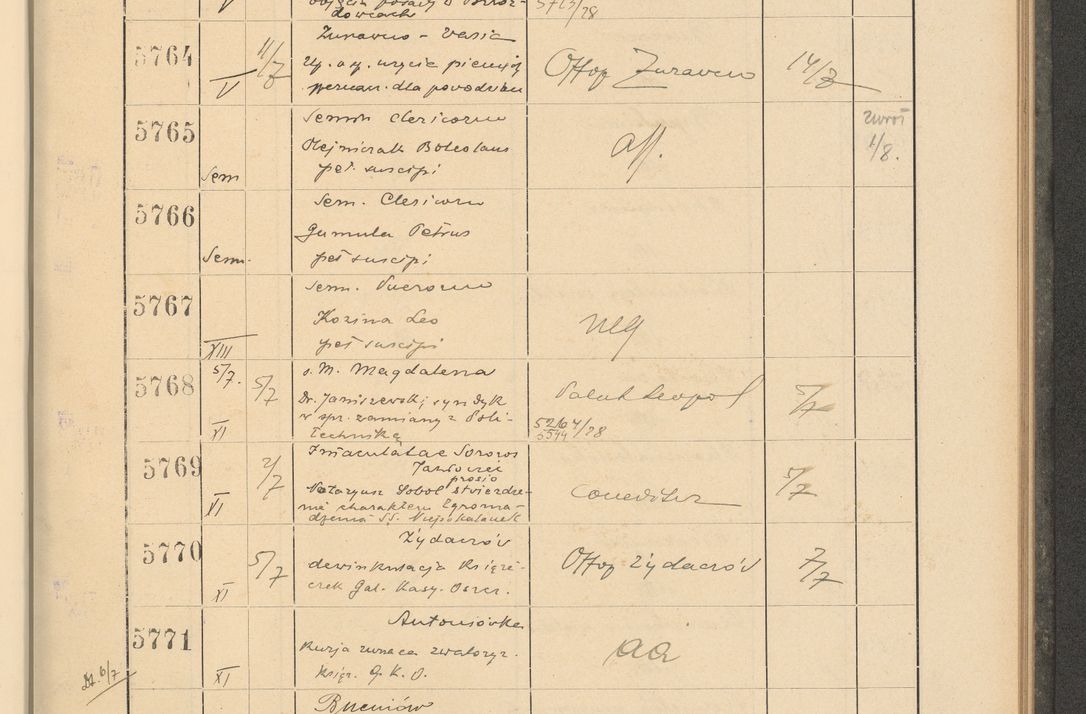 V
dowcach
28
5764
V
11/7
Żurawno - Vasic
perman. dla powodzian
Offop Żurawno
14/7
5765
Sem
Semin Clericorum
Boleslaus
pet. suscipi
aff.
zwrot
1/8.
5766
Sem.
Sem. Clericorum
Gamula Petrus
pet suscipi
5767
XIII
Sem. Puerorum
Kozina Leo
pet suscipi
neg
5768
5/7.
XI
5/7
s. M. Magdalena
Dr. Janiszewski syndyk
w spr. zamiany z Poli-
techniką
5210
5544/28
5/7
5769
XI
2/7
Immaculatae Soror
Jarosł
prosio
Notaryusz Sobol stwierdze-
nie charakteru Zgroma-
dzenia SS. Niepokalanek
5/7
5770
XI
5/7
Żydaczów
dewinkulacja Księże-
czek Gal. Kasy Oszcz.
Offop Żydaczów
7/7
5771
XI
Antoniówka
Kurja zwraca zwaloryz.
Księż. G. K. O.
aa
6/7